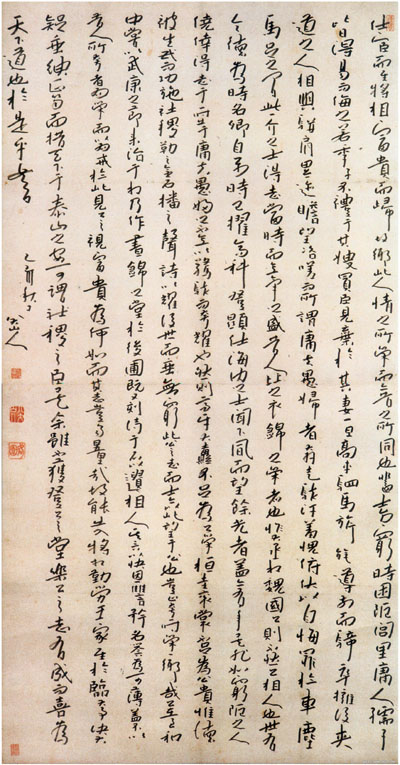 仕宦而至將相富貴而歸故鄉此人情之所榮而今昔之所同也蓋士方窮時困阨閭里庸人孺子
皆得易而侮之若季子不禮于其嫂買臣見棄於其妻一旦高車駟馬旗旄導前而騎卒擁後夾
道之人相與駢肩累迹瞻望咨嗟而所謂庸夫愚婦者奔走駭汗羞愧俯伏以自悔罪於車塵
馬足之間此一介之士得志當時而意氣之盛昔人比之衣錦之榮者也惟丞相魏國公則不然公相人也世有
令德為時名卿自公少時已擢高科登顯仕海內之士聞下風而望餘光者蓋亦有年矣非如窮阨之人
僥倖得志于一時庸夫愚婦之意以驚駭而夸耀也然則高牙大纛不足為公榮桓圭袞裳不足為公貴惟德
被生民而功施社稷勒之金石播之聲詩以耀後世而垂無窮此公之志而士亦以此望于公也豈止夸一時榮一鄉哉公在至和
中嘗以武康之節來治于相乃作晝錦之堂於後圃既又刻詩于石以遺相人其言以快恩讐矜名譽為可薄蓋不以
昔人所夸者為榮而以為戒於此見公之視富貴為何如而其志豈易量哉故能出入將相勤勞王家至於臨大事決大
議垂紳正笏而措天下于泰山之安可謂社稷之臣矣余雖不獲登公之堂樂公之志有成而喜為
天下道也於是乎書
乙亥秋日
八大山人